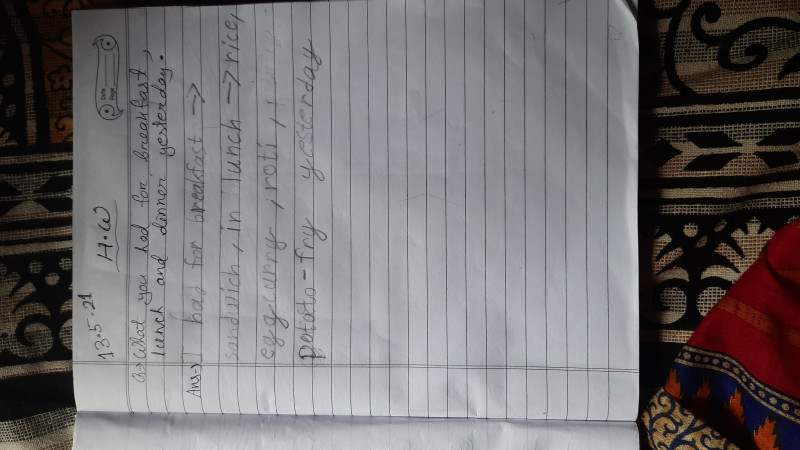 13.5.21
H.W
Date
Page
Q→What you had for breakfast,
lunch and dinner yesterday.
Ans→I had for breakfast →
sandwich, in lunch → rice,
egg curry, roti,
Potato-fry yesterday